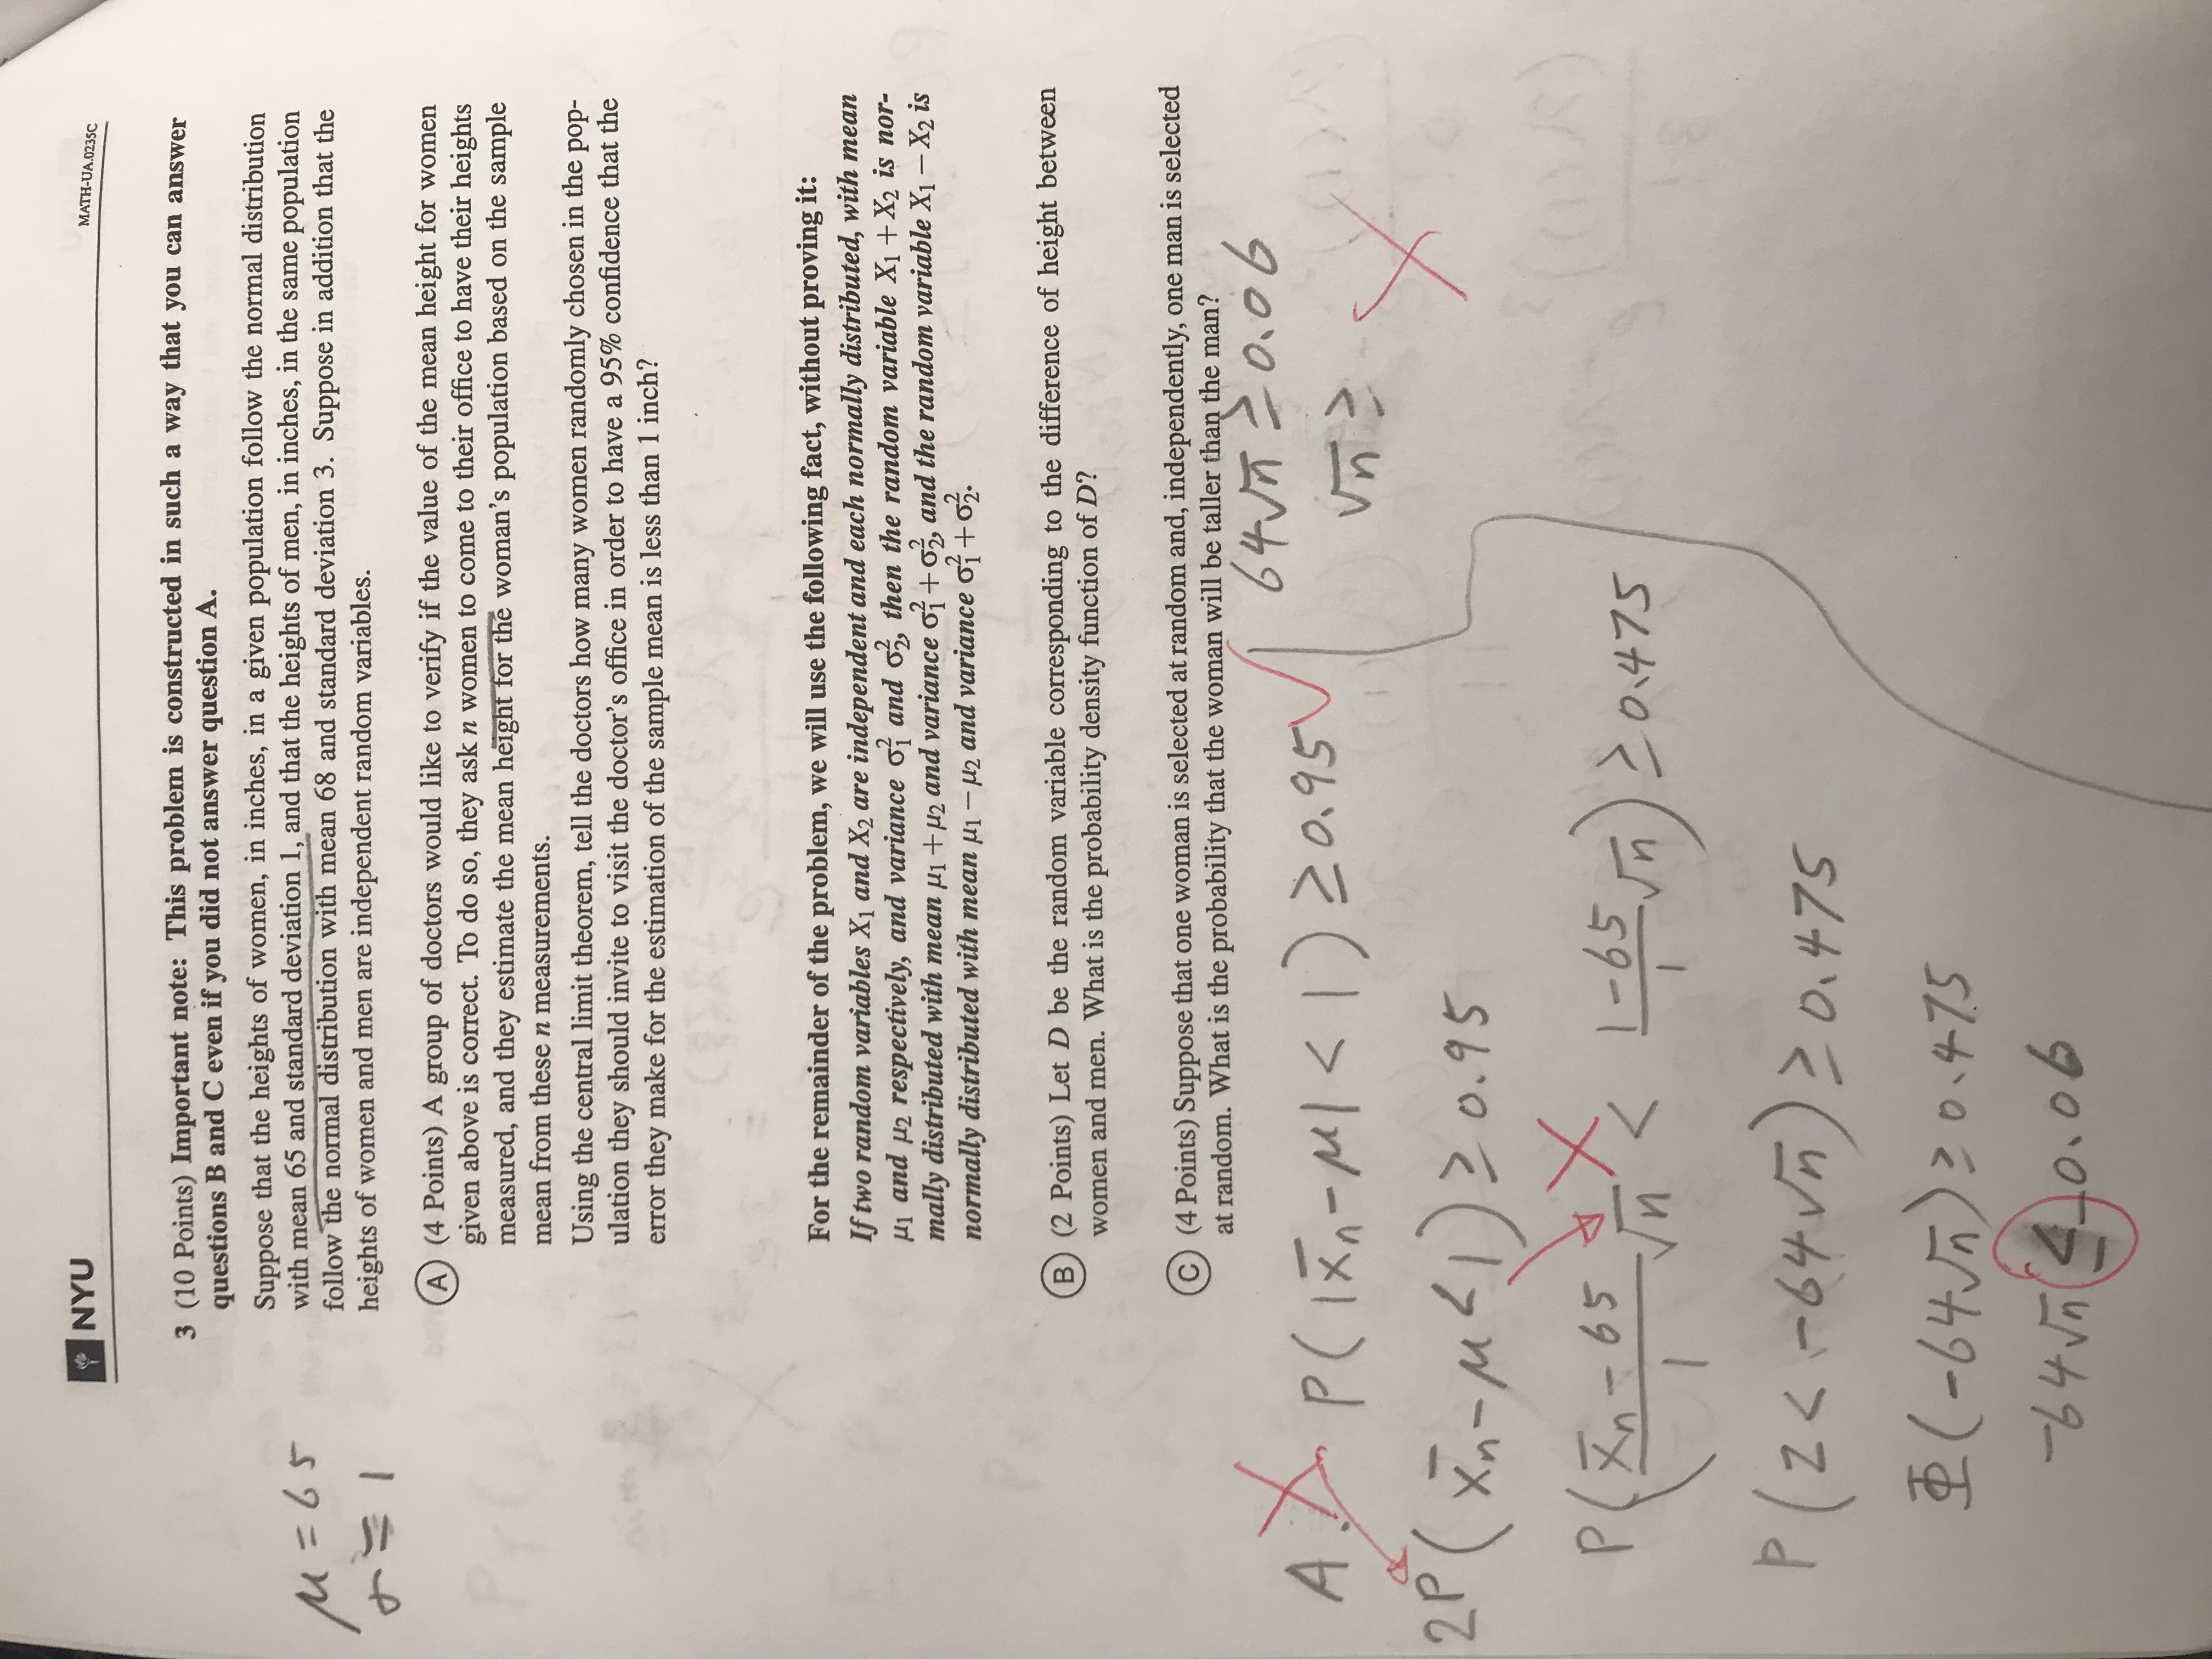 NYU
MATH-UA.0235C
3 (10 Points) Important note: This problem is constructed in such a way that you can answer
questions B and C even if you did not answer question A.
Suppose that the heights of women, in inches, in a given population follow the normal distribution
with mean 65 and standard deviation 1, and that the heights of men, in inches, in the same population
follow the normal distribution with mean 68 and standard deviation 3. Suppose in addition that the
heights of women and men are independent random variables.
μ = 65
σ = 1
A (4 Points) A group of doctors would like to verify if the value of the mean height for women
given above is correct. To do so, they ask n women to come to their office to have their heights
measured, and they estimate the mean height for the woman's population based on the sample
mean from these n measurements.
Using the central limit theorem, tell the doctors how many women randomly chosen in the pop-
ulation they should invite to visit the doctor's office in order to have a 95% confidence that the
error they make for the estimation of the sample mean is less than 1 inch?
For the remainder of the problem, we will use the following fact, without proving it:
If two random variables X₁ and X₂ are independent and each normally distributed, with mean
μ₁ and μ₂ respectively, and variance σ₁² and σ₂², then the random variable X₁ + X₂ is nor-
mally distributed with mean μ₁ + μ₂ and variance σ₁² + σ₂², and the random variable X₁ − X₂ is
normally distributed with mean μ₁ − μ₂ and variance σ₁² + σ₂².
B (2 Points) Let D be the random variable corresponding to the difference of height between
women and men. What is the probability density function of D?
C (4 Points) Suppose that one woman is selected at random and, independently, one man is selected
at random. What is the probability that the woman will be taller than the man?
A. P(|x̄ₙ - μ| < 1) ≥ 0.95
2P(x̄ₙ - μ < 1) ≥ 0.95
P((x̄ₙ - 65)/1 √n < (1-65)/1 √n) ≥ 0.475
P(Z < -64√n) ≥ 0.475
Φ(-64√n) ≥ 0.475
-64√n ≤ -0.06
64√n ≥ 0.06
√n ≥